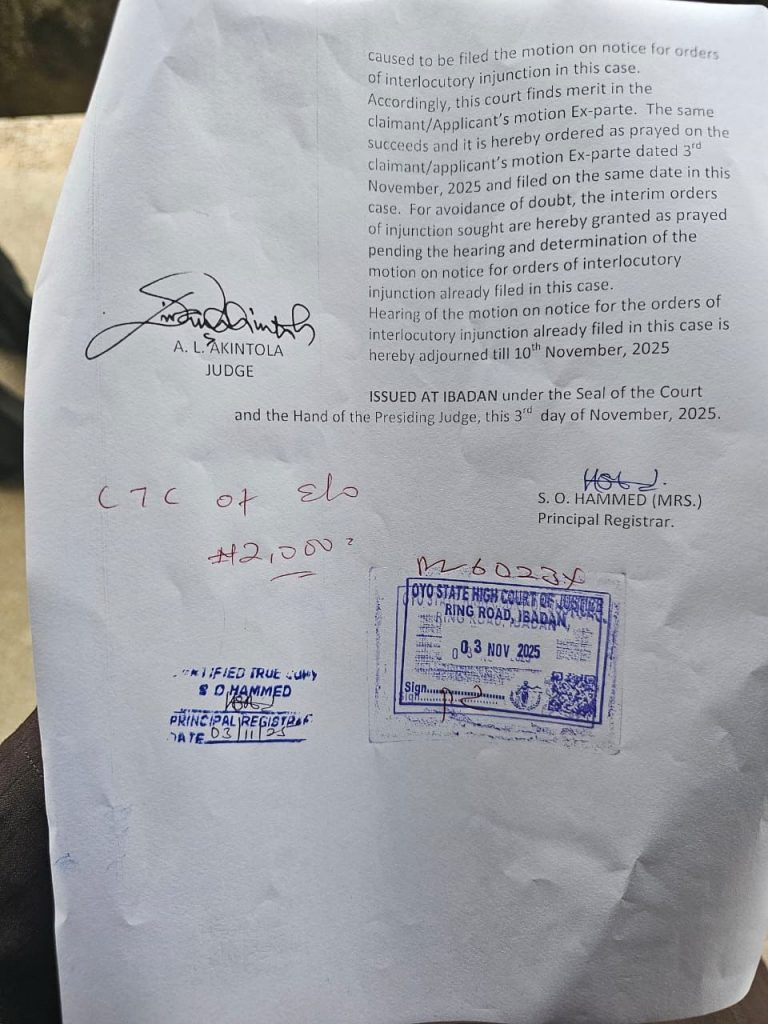 caused to be filed the motion on notice for orders
of interlocutory injunction in this case.
Accordingly, this court finds merit in the
claimant/Applicant's motion Ex-parte. The same
succeeds and it is hereby ordered as prayed on the
claimant/applicant's motion Ex-parte dated 3rd
November, 2025 and filed on the same date in this
case. For avoidance of doubt, the interim orders
of injunction sought are hereby granted as prayed
pending the hearing and determination of the
motion on notice for orders of interlocutory
injunction already filed in this case.
Hearing of the motion on notice for the orders of
interlocutory injunction already filed in this case is
hereby adjourned till 10th November, 2025
A. L. AKINTOLA
JUDGE
ISSUED AT IBADAN under the Seal of the Court
and the Hand of the Presiding Judge, this 3rd day of November, 2025.
S. O. HAMMED (MRS.)
Principal Registrar.
CTC of
₦2,000
OYO STATE HIGH COURT OF JUSTICE
RING ROAD, IBADAN
03 NOV 2025
Sign
CERTIFIED TRUE COPY
S O HAMMED
PRINCIPAL REGISTRAR
DATE 03/11/25